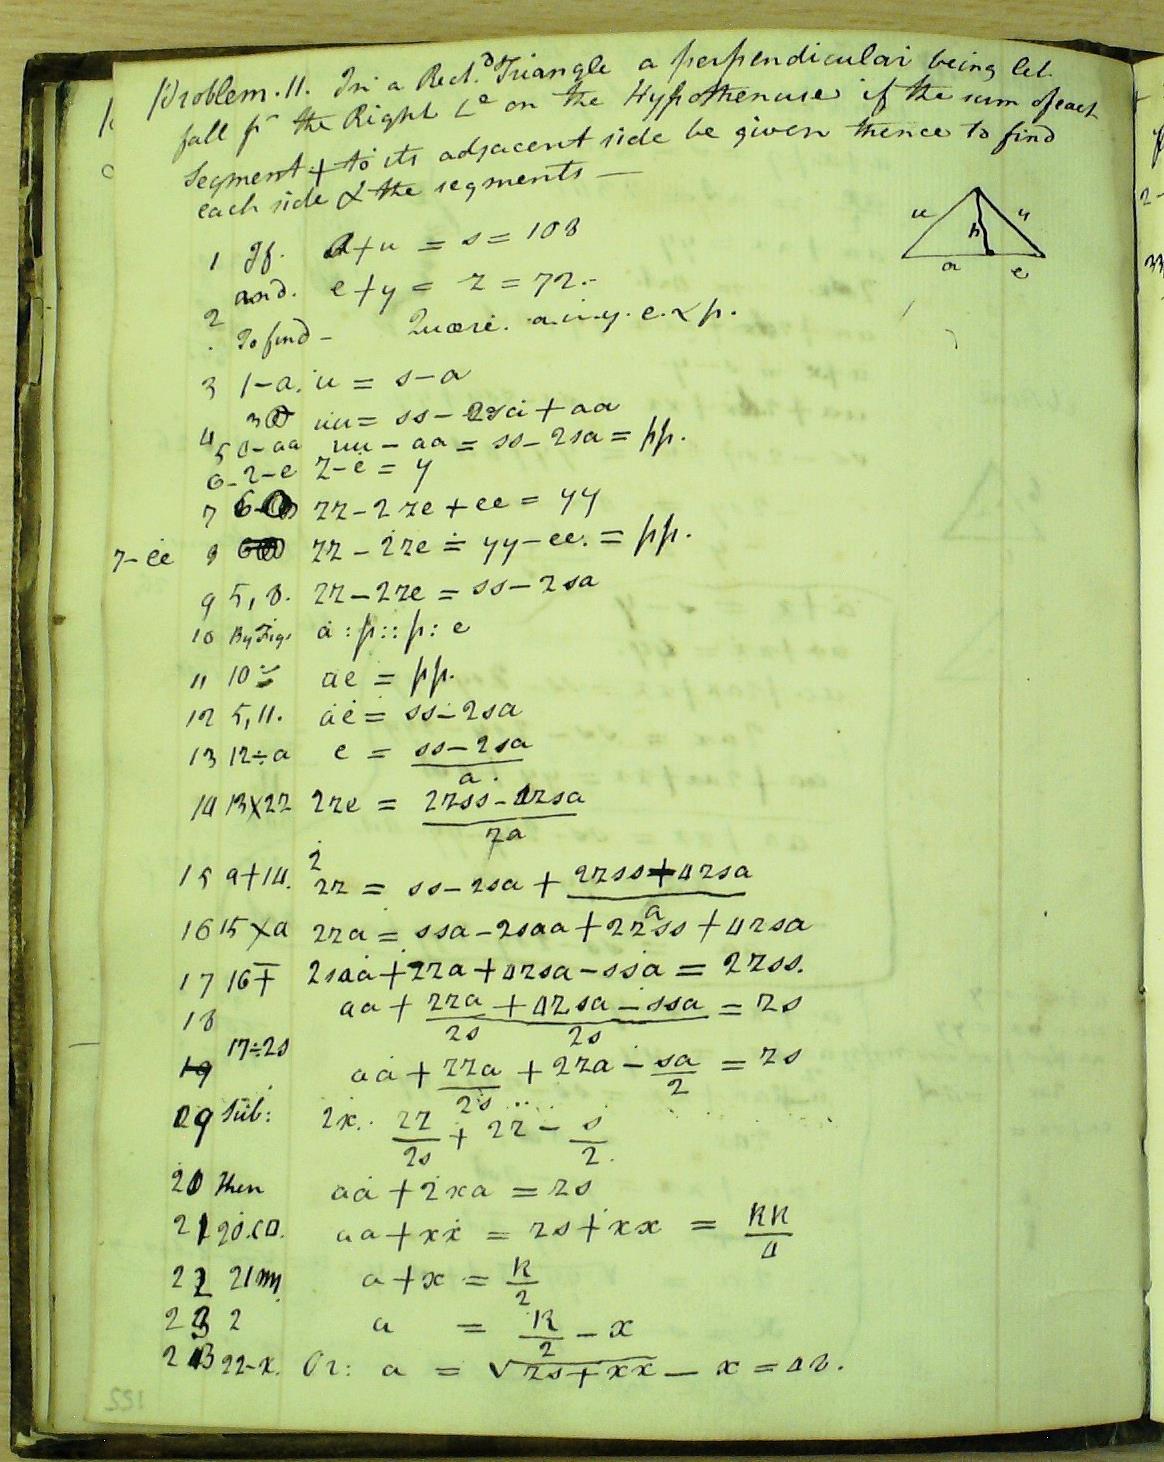 Problem. 11. In a Rect.d Triangle a perpendicular being let
fall fr the Right Le on the Hypothenuse if the sum of each
Segment + to its adjacent side be given thence to find
each side & the segments —
u y
p
a e
1 If. a+u = s = 108
2 and. e+y = z = 72.-
To find - Quære. a. u. y. e. & p.
3 1-a. u = s-a
4 3 uu = ss - 2sa + aa
5 -aa uu - aa = ss - 2sa = pp.
6 - 2-e z-e = y
7 6 zz - 2ze + ee = yy
7-ee 8 zz - 2ze = yy - ee. = pp.
9 5, 8. zz - 2ze = ss - 2sa
10 By Fig. a : p :: p : e
11 10 ae = pp.
12 5, 11. ae = ss - 2sa
13 12÷a e = ss - 2sa
a.
14 13×2z 2ze = 2zss - 4zsa
za
15 9+14. zz = ss - 2sa + 2zss + 4zsa
a
16 15×a zza = ssa - 2saa + 2zss + 4zsa
17 16 2saa + zza + 4zsa - ssa = 2zss.
18 aa + zza + 4zsa - ssa = zs
2s 2s
17÷2s
19 aa + zza + 2za - sa = zs
2s 2
19 Sub: 2x. zz + 2z - s
2s 2.
20 Then aa + 2xa = zs
21 20.c□. aa + xx = zs + xx = RR
4
22 21 a + x = R
2
23 2 a = R - x
2
23 22-x. Or: a = √zs + xx - x = 48.